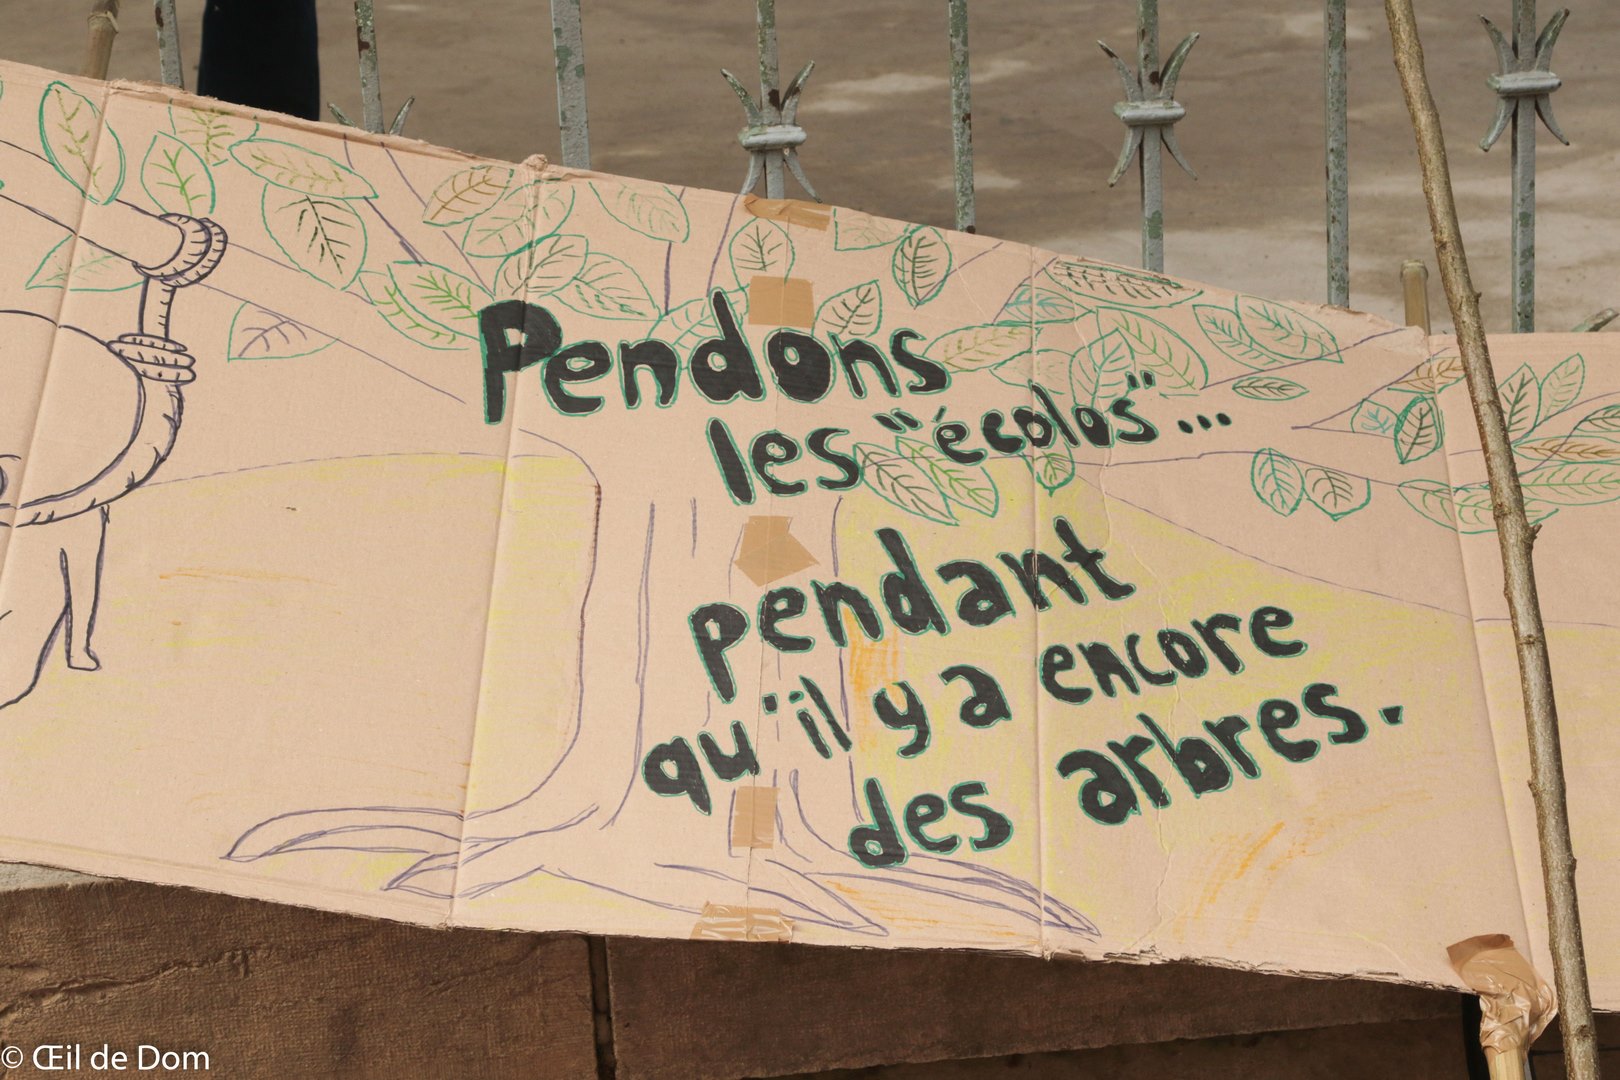 Pendons
les "écolos"...
pendant
qu'il y a encore
des arbres.
© Œil de Dom